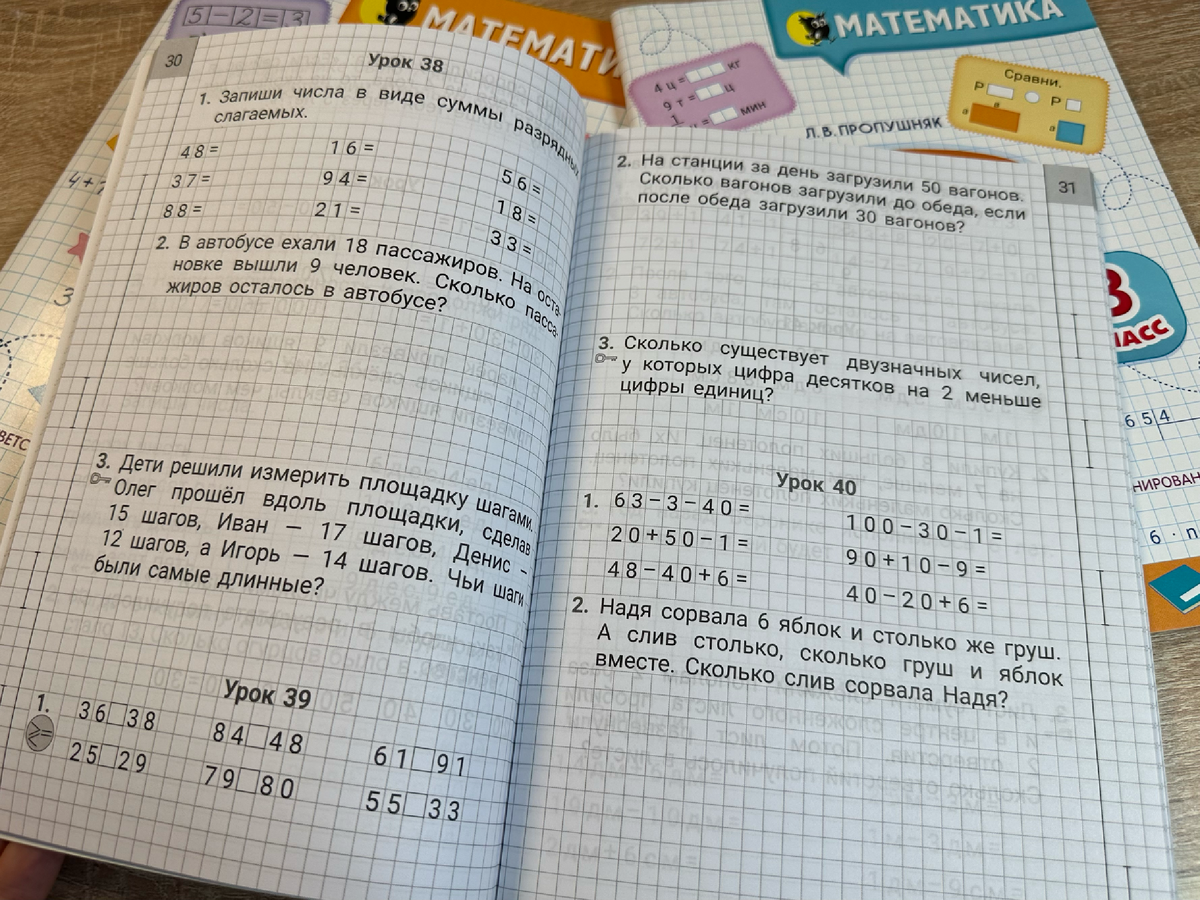 5-2=3
МАТЕМАТИ
МАТЕМАТИКА
4 ц = кг
9 т = ц
мин
Сравни.
Р Р
а а
Л.В.ПРОПУШНЯК
3
654
6
30
Урок 38
1. Запиши числа в виде суммы разрядных
слагаемых.
48= 16= 56=
37= 94= 18=
88= 21= 33=
2. В автобусе ехали 18 пассажиров. На оста-
новке вышли 9 человек. Сколько пасса-
жиров осталось в автобусе?
3. Дети решили измерить площадку шагами.
Олег прошёл вдоль площадки, сделав
15 шагов, Иван – 17 шагов, Денис -
12 шагов, а Игорь – 14 шагов. Чьи шаги
были самые длинные?
Урок 39
1. 36 38 84 48 61 91
>=
25 29 79 80 55 33
31
2. На станции за день загрузили 50 вагонов.
Сколько вагонов загрузили до обеда, если
после обеда загрузили 30 вагонов?
3. Сколько существует двузначных чисел,
у которых цифра десятков на 2 меньше
цифры единиц?
Урок 40
1. 63-3-40= 100-30-1=
20+50-1= 90+10-9=
48-40+6= 40-20+6=
2. Надя сорвала 6 яблок и столько же груш.
А слив столько, сколько груш и яблок
вместе. Сколько слив сорвала Надя?